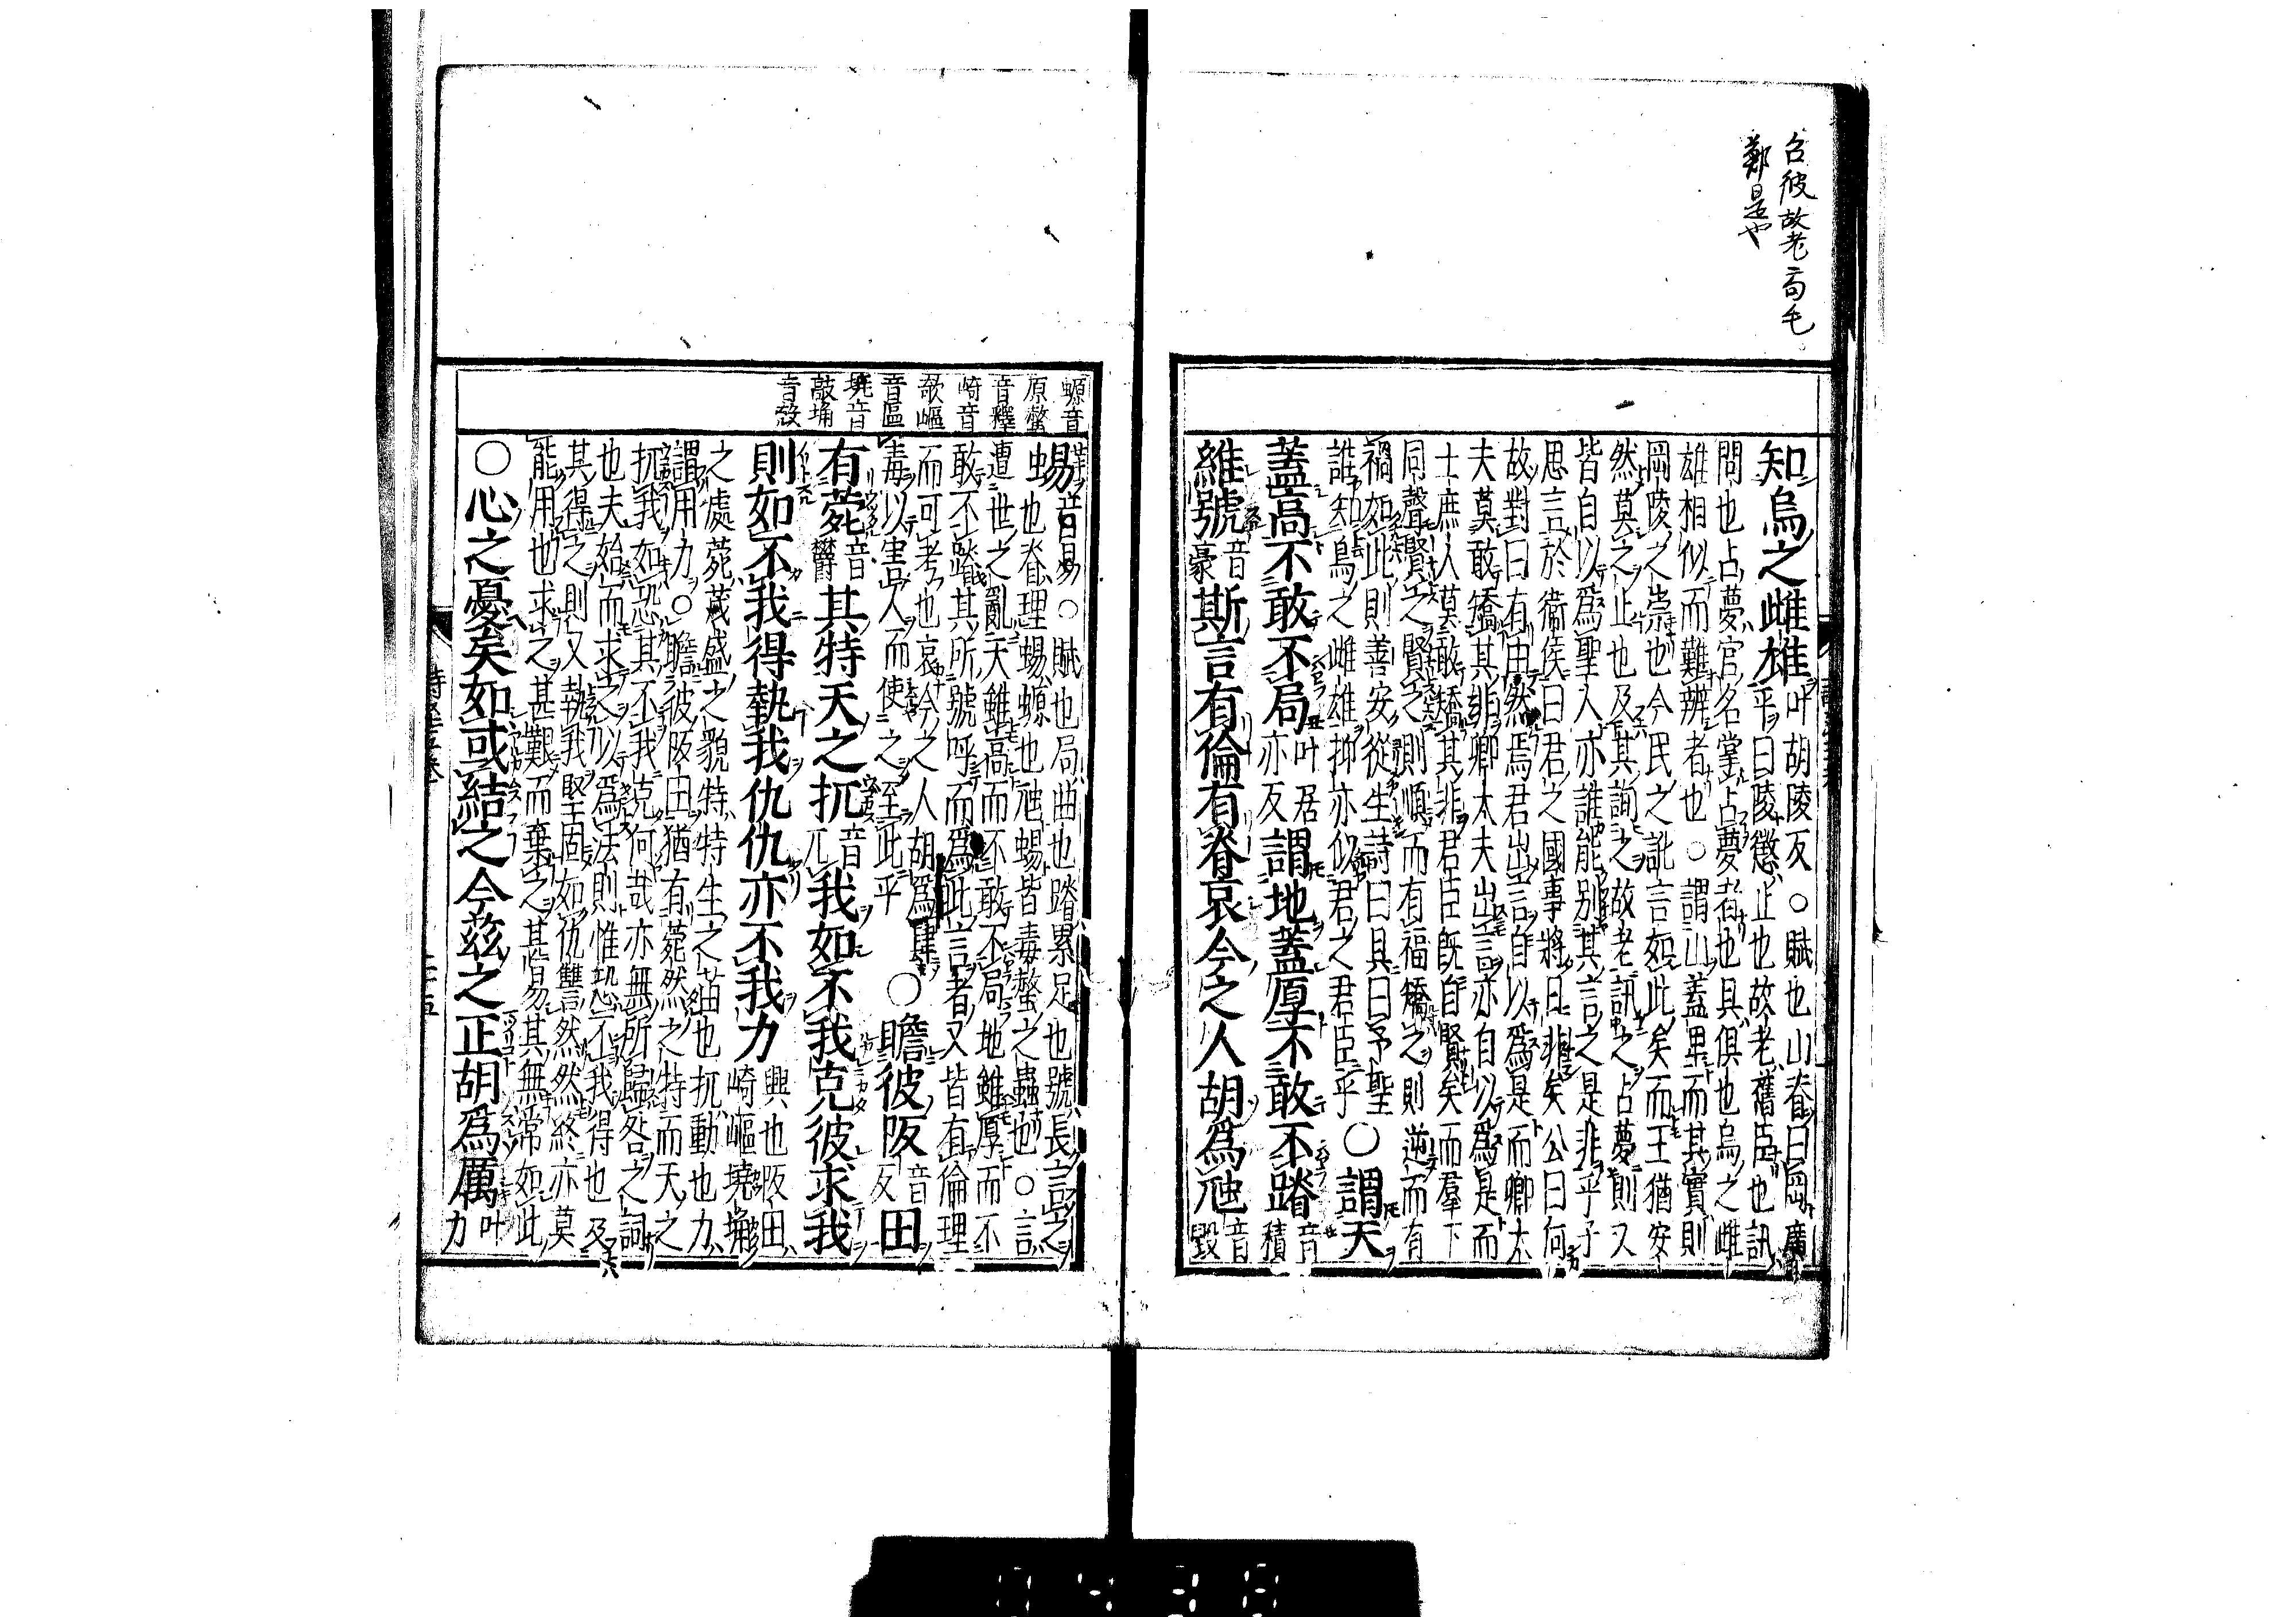 召彼故老高毛
鄭是也
知烏之雌雄叶胡陵反○賦也山脊曰岡廣
平曰陵懲止也故老舊臣也訊
問也占夢官名掌占夢者也具俱也烏之雌
雄相似而難辨者也○謂山蓋卑而其實則
岡陵之崇也今民之訛言如此矣而王猶安
然莫之止也及其詢之故老訊之占夢則又
皆自以爲聖人亦誰能別其言之是非乎子
思言於衞侯曰君之國事將日非矣公曰何
故對曰有由然焉君出言自以爲是而卿大
夫莫敢矯其非卿大夫出言亦自以爲是而
士庶人莫敢矯其非君臣既自賢矣而羣下
同聲賢之賢之則順而有福矯之則逆而有
禍如此則善安從生詩曰具曰予聖
誰知烏之雌雄抑亦似君之君臣乎○謂天
蓋高不敢不局叶居亦反謂地蓋厚不敢不蹐音積
維號音豪斯言有倫有脊哀今之人胡爲虺音毀
蜴音易○賦也局曲也蹐累足也號長言之
也脊理蜴螈也虺蜴皆毒螫之蟲也○言
遭世之亂天雖高而不敢不局地雖厚而不
敢不蹐其所號呼而爲此言者又皆有倫理
而可考也哀今之人胡爲肆
毒以害人而使之至此乎○瞻彼阪音反田
有菀音鬱其特天之扤音兀我如不我克彼求我
則如不我得執我仇仇亦不我力興也阪田
崎嶇墝埆
之處菀茂盛之貌特特生之苗也扤動也力
謂用力○瞻彼阪田猶有菀然之特而天之
扤我如恐其不我克何哉亦無所歸咎之詞
也夫始而求之以爲法則惟恐不我得也及
其得之則又執我堅固如仇讐然然終亦莫
能用也求之甚艱而棄之甚易其無常如此
○心之憂矣如或結之今茲之正胡爲厲叶力
螈音
原螫
音釋
崎音
欹嶇
音區
墝音
敲埆
音殼